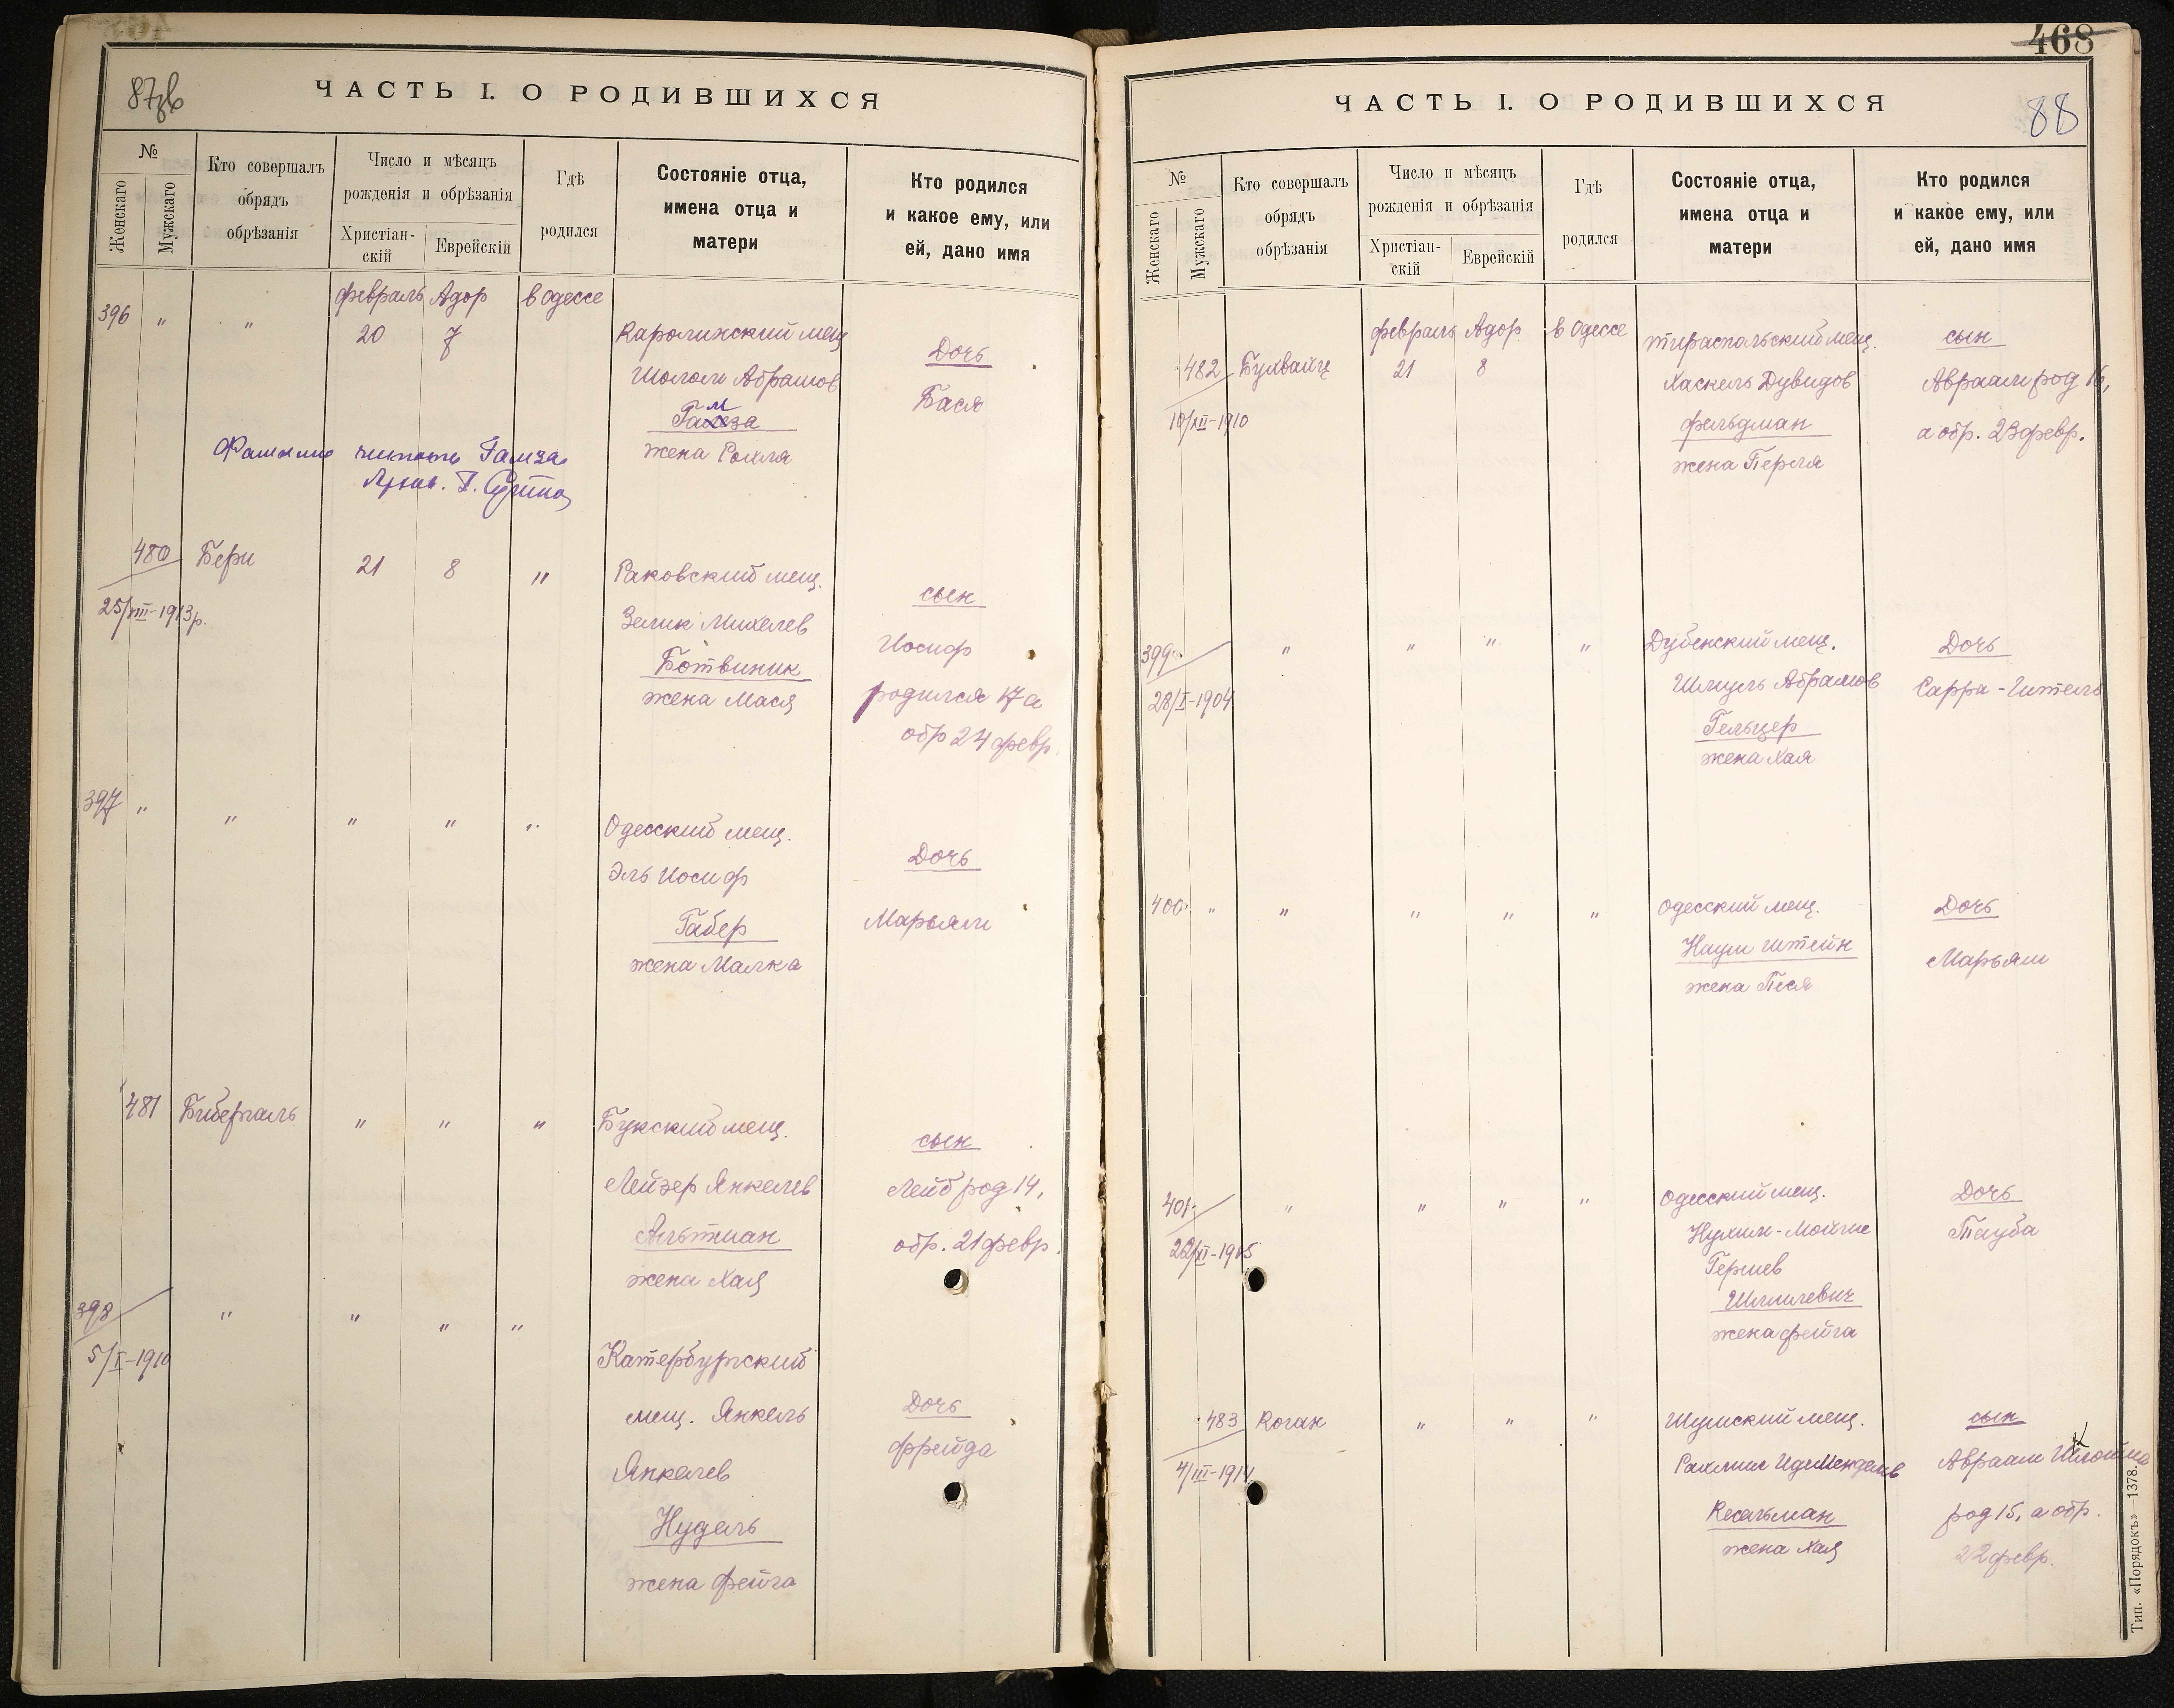 87об
ЧАСТЬ I. О РОДИВШИХСЯ
№
Женскаго
Мужскаго
Кто совершалъ
обрядъ
обрѣзанія
Число и мѣсяцъ
рожденія и обрѣзанія
Христіан-
скій
Еврейскій
Гдѣ
родился
Состояніе отца,
имена отца и
матери
Кто родился
и какое ему, или
ей, дано имя
396 " " февраль Адор в Одессе
20 7
Каролинский мещ
Шолом Абрамов
Гамза
жена Рохля
Дочь
Бася
Фамилию читать Гамза
480 Бери 21 8 "
25/VIII-1913р.
Раковский мещ.
Зелик Михелев
Ботвиник
жена Мася
сын
Иосиф
родился 17 а
обр 24 февр.
397 " " " " "
Одесский мещ.
Эль Иосиф
Габер
жена Малка
Дочь
Марьям
481 Бибергаль " " "
Букский мещ.
Лейзер Янкелев
Альтман
жена Хая
сын
Лейб род 14,
обр. 21 февр.
398 " " " "
5/I-1910
Катербургский
мещ. Янкель
Янкелев
Нудель
жена Фейга
Дочь
Фрейда
468
88
ЧАСТЬ I. О РОДИВШИХСЯ
№
Женскаго
Мужскаго
Кто совершалъ
обрядъ
обрѣзанія
Число и мѣсяцъ
рожденія и обрѣзанія
Христіан-
скій
Еврейскій
Гдѣ
родился
Состояніе отца,
имена отца и
матери
Кто родился
и какое ему, или
ей, дано имя
февраль Адор в Одессе
482 Бухвайц 21 8
10/XII-1910
тираспольский мещ.
Хаскель Дувидов
фельдман
жена Перля
сын
Авраам род 16,
а обр. 23 февр.
399 " " " "
28/I-1904
Дубенский мещ.
Шмуль Абрамов
Гельцер
жена Хая
Дочь
Сарра-Гитель
400 " " " " "
Одесский мещ.
Наум Штейн
жена Песя
Дочь
Марьям
401 " " " "
22/XI-1915
Одесский мещ.
Нухим-Мойше
Гершев
Шмилевич
жена фейга
Дочь
Тауба
483 Коган " " "
4/III-1914
Шумский мещ.
Рахмил
жена Хая
сын
Авраам
род 15, а обр.
22 февр.
Тип. «Порядокъ»—1378.